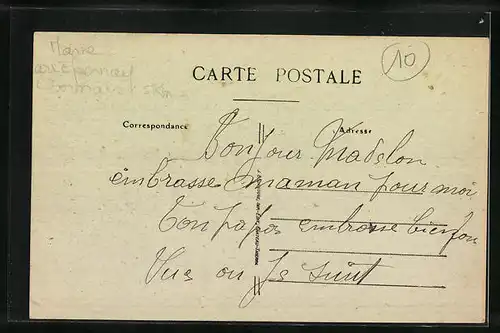 Marne
10
CARTE POSTALE
Correspondance
Adresse
Bonjour Madelon
embrasse maman pour moi
Ton papa embrasse bien fon
Vue ou Je suit